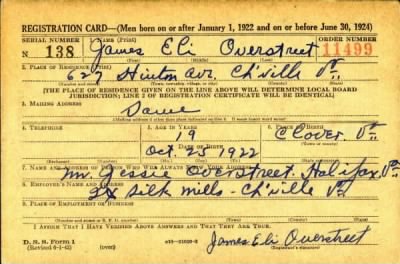 REGISTRATION CARD—(Men born on or after January 1, 1922 and on or before June 30, 1924)
SERIAL NUMBER 1. NAME (Print) ORDER NUMBER
N 138 James Eli Overstreet 11499
(First) (Middle) (Last)
2. PLACE OF RESIDENCE (Print)
627 Hinton Ave. Ch'ville Va.
(Number and street) (Town, township, village, or city) (County) (State)
[THE PLACE OF RESIDENCE GIVEN ON THE LINE ABOVE WILL DETERMINE LOCAL BOARD
JURISDICTION; LINE 2 OF REGISTRATION CERTIFICATE WILL BE IDENTICAL]
3. MAILING ADDRESS
Same
4. TELEPHONE 5. AGE IN YEARS 6. PLACE OF BIRTH
19 Clover Va.
DATE OF BIRTH
Oct. 25 1922
7. NAME AND ADDRESS OF PERSON WHO WILL ALWAYS KNOW YOUR ADDRESS
Jessie Overstreet. Halifax, Va.
8. EMPLOYER'S NAME AND ADDRESS
silk mills - Ch'ville Va.
9. PLACE OF EMPLOYMENT OR BUSINESS
I AFFIRM THAT I HAVE VERIFIED ABOVE ANSWERS AND THAT THEY ARE TRUE.
D. S. S. Form 1
(over)
James Eli Overstreet